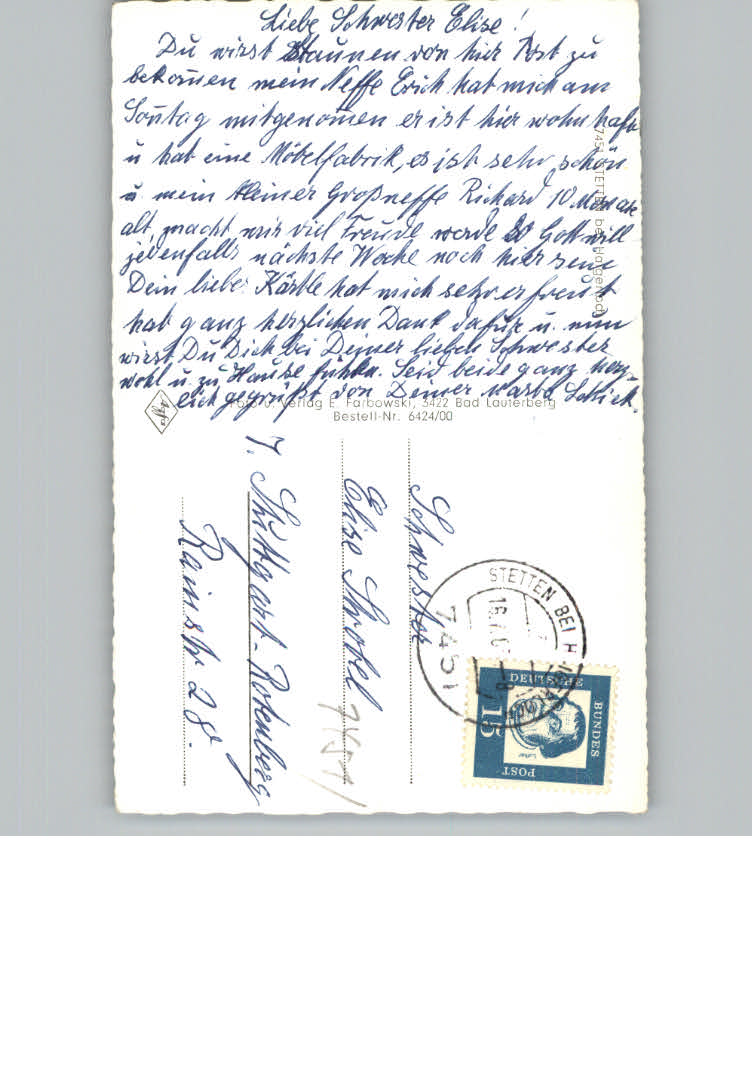 Liebe Schwester Elise!
Du wirst Staunen von hier Post zu
bekom̄en mein Neffe Erich hat mich am
Son̄tag mitgenom̄en er ist hier wohnhaft
u hat eine Möbelfabrik, es ist sehr schön
u mein kleiner Großneffe Richard 10 Monate
alt, macht mir viel Freude werde so Gott will
jedenfalls nächste Woche noch hier sein
Dein liebes Kärtle hat mich sehr erfreut
hab ganz herzlichen Dank dafür u. nun
wirst Du Dich bei Deiner lieben Schwester
wohl u. zu Hause fühlen. Seid beide ganz herz-
lich gegrüßt von Deiner Schick.
7451 STETTEN bei Haigerloch
Agfa
Foto u. Verlag E. Farbowski, 3422 Bad Lauterberg
Bestell-Nr. 6424/00
Schwester
Elise Strobel
7. Stuttgart-Rotenberg
Rainstr 28.
7451
STETTEN BEI
7451
DEUTSCHE
BUNDES
POST
15
Luther